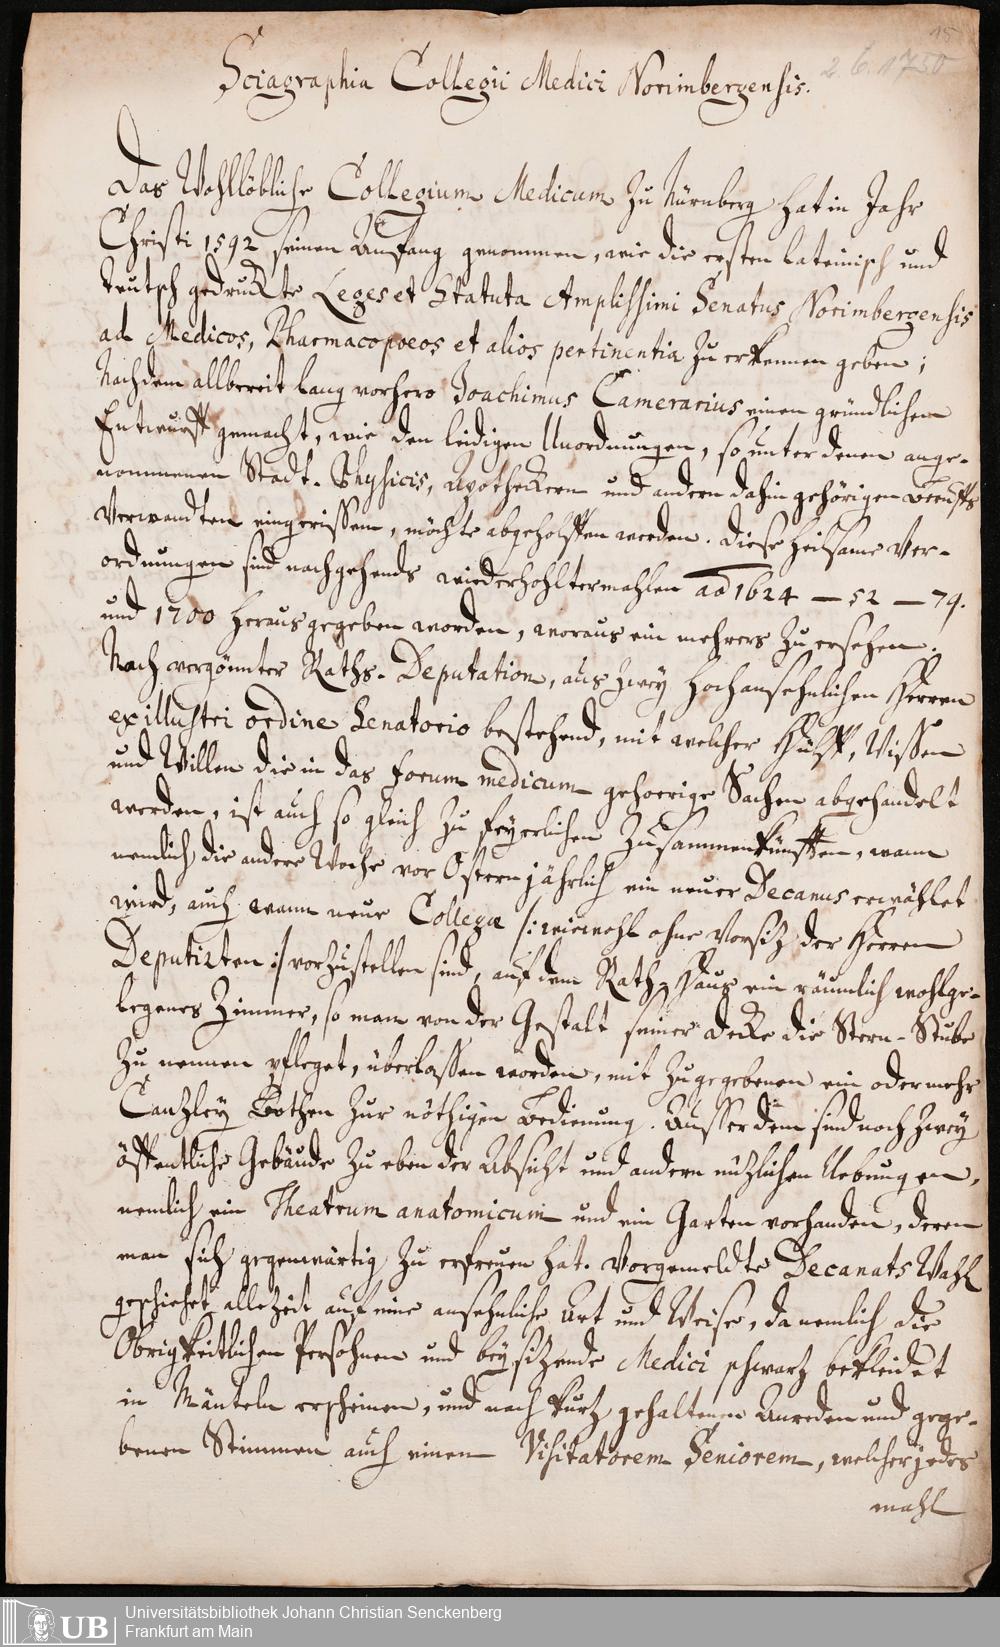 15
2. 6. 1750
Sciagraphia Collegii Medici Norimbergensis.
Das Wohllöbliche Collegium Medicum zu Nürnberg hat in Jahr
Christi 1592 seinen Anfang genommen, wie die ersten lateinisch und
teutsch gedruckte Leges et Statuta Amplissimi Senatus Norimbergensis
ad Medicos, Pharmacopoeos et alios pertinentia zu erkennen geben;
Nachdem allbereit lang vorhero Joachimus Camerarius einen gründlichen
Entwurff gemacht, wie den leidigen Unordnungen, so unter denen ange-
nommenen Stadt-Physicis, Apotheckern und andern dahin gehörigen Beruffs
Verwandten eingerissen, möchte abgeholffen werden. Diese heilsame Ver-
ordnungen sind nachgehends wiederhohltermahlen ao 1624 — 52 — 79.
und 1700 herausgegeben worden, woraus ein mehrers zu ersehen.
Nach vergönnter Raths-Deputation, aus zwey Hochansehnlichen Herren
ex illustri ordine Senatorio bestehend, mit welcher Hülff, Wissen
und Willen die in das forum medicum gehoerige Sachen abgehandelt
werden, ist auch so gleich zu feyerlichen Zusammenkünfften, wann
nemlich die andere Woche vor Ostern jährlich ein neuer Decanus erwählet
wird, auch wann neue Collegæ /: wiewohl ohne Vorsiz der Herren
Deputirten :/ vorzustellen sind, auf dem Rath-Haus ein räumlich wohlge-
legenes Zimmer, so man von der Gestalt seiner Decke die Stern-Stube
zu nennen pfleget, überlassen worden, mit zugegebenen ein oder mehr
Canzley Bothen zur nöthigen Bedienung. Ausser dem sind noch zwey
öffentliche Gebäude zu eben der Absicht und andern nüzlichen Uebungen,
nemlich ein Theatrum anatomicum und ein Garten vorhanden, deren
man sich gegenwärtig zu erfreuen hat. Vorgemeldte Decanats Wahl
geschiehet allezeit auf eine ansehnliche Art und Weise, da nemlich die
Obrigkeitlichen Persohnen und beysitzende Medici schwartz bekleidet
in Mänteln erscheinen, und nach kurtz gehaltenen Anreden und gege-
benen Stimmen auch einen Visitatorem Seniorem, welcher jedes
mahl
UB
Universitätsbibliothek Johann Christian Senckenberg
Frankfurt am Main